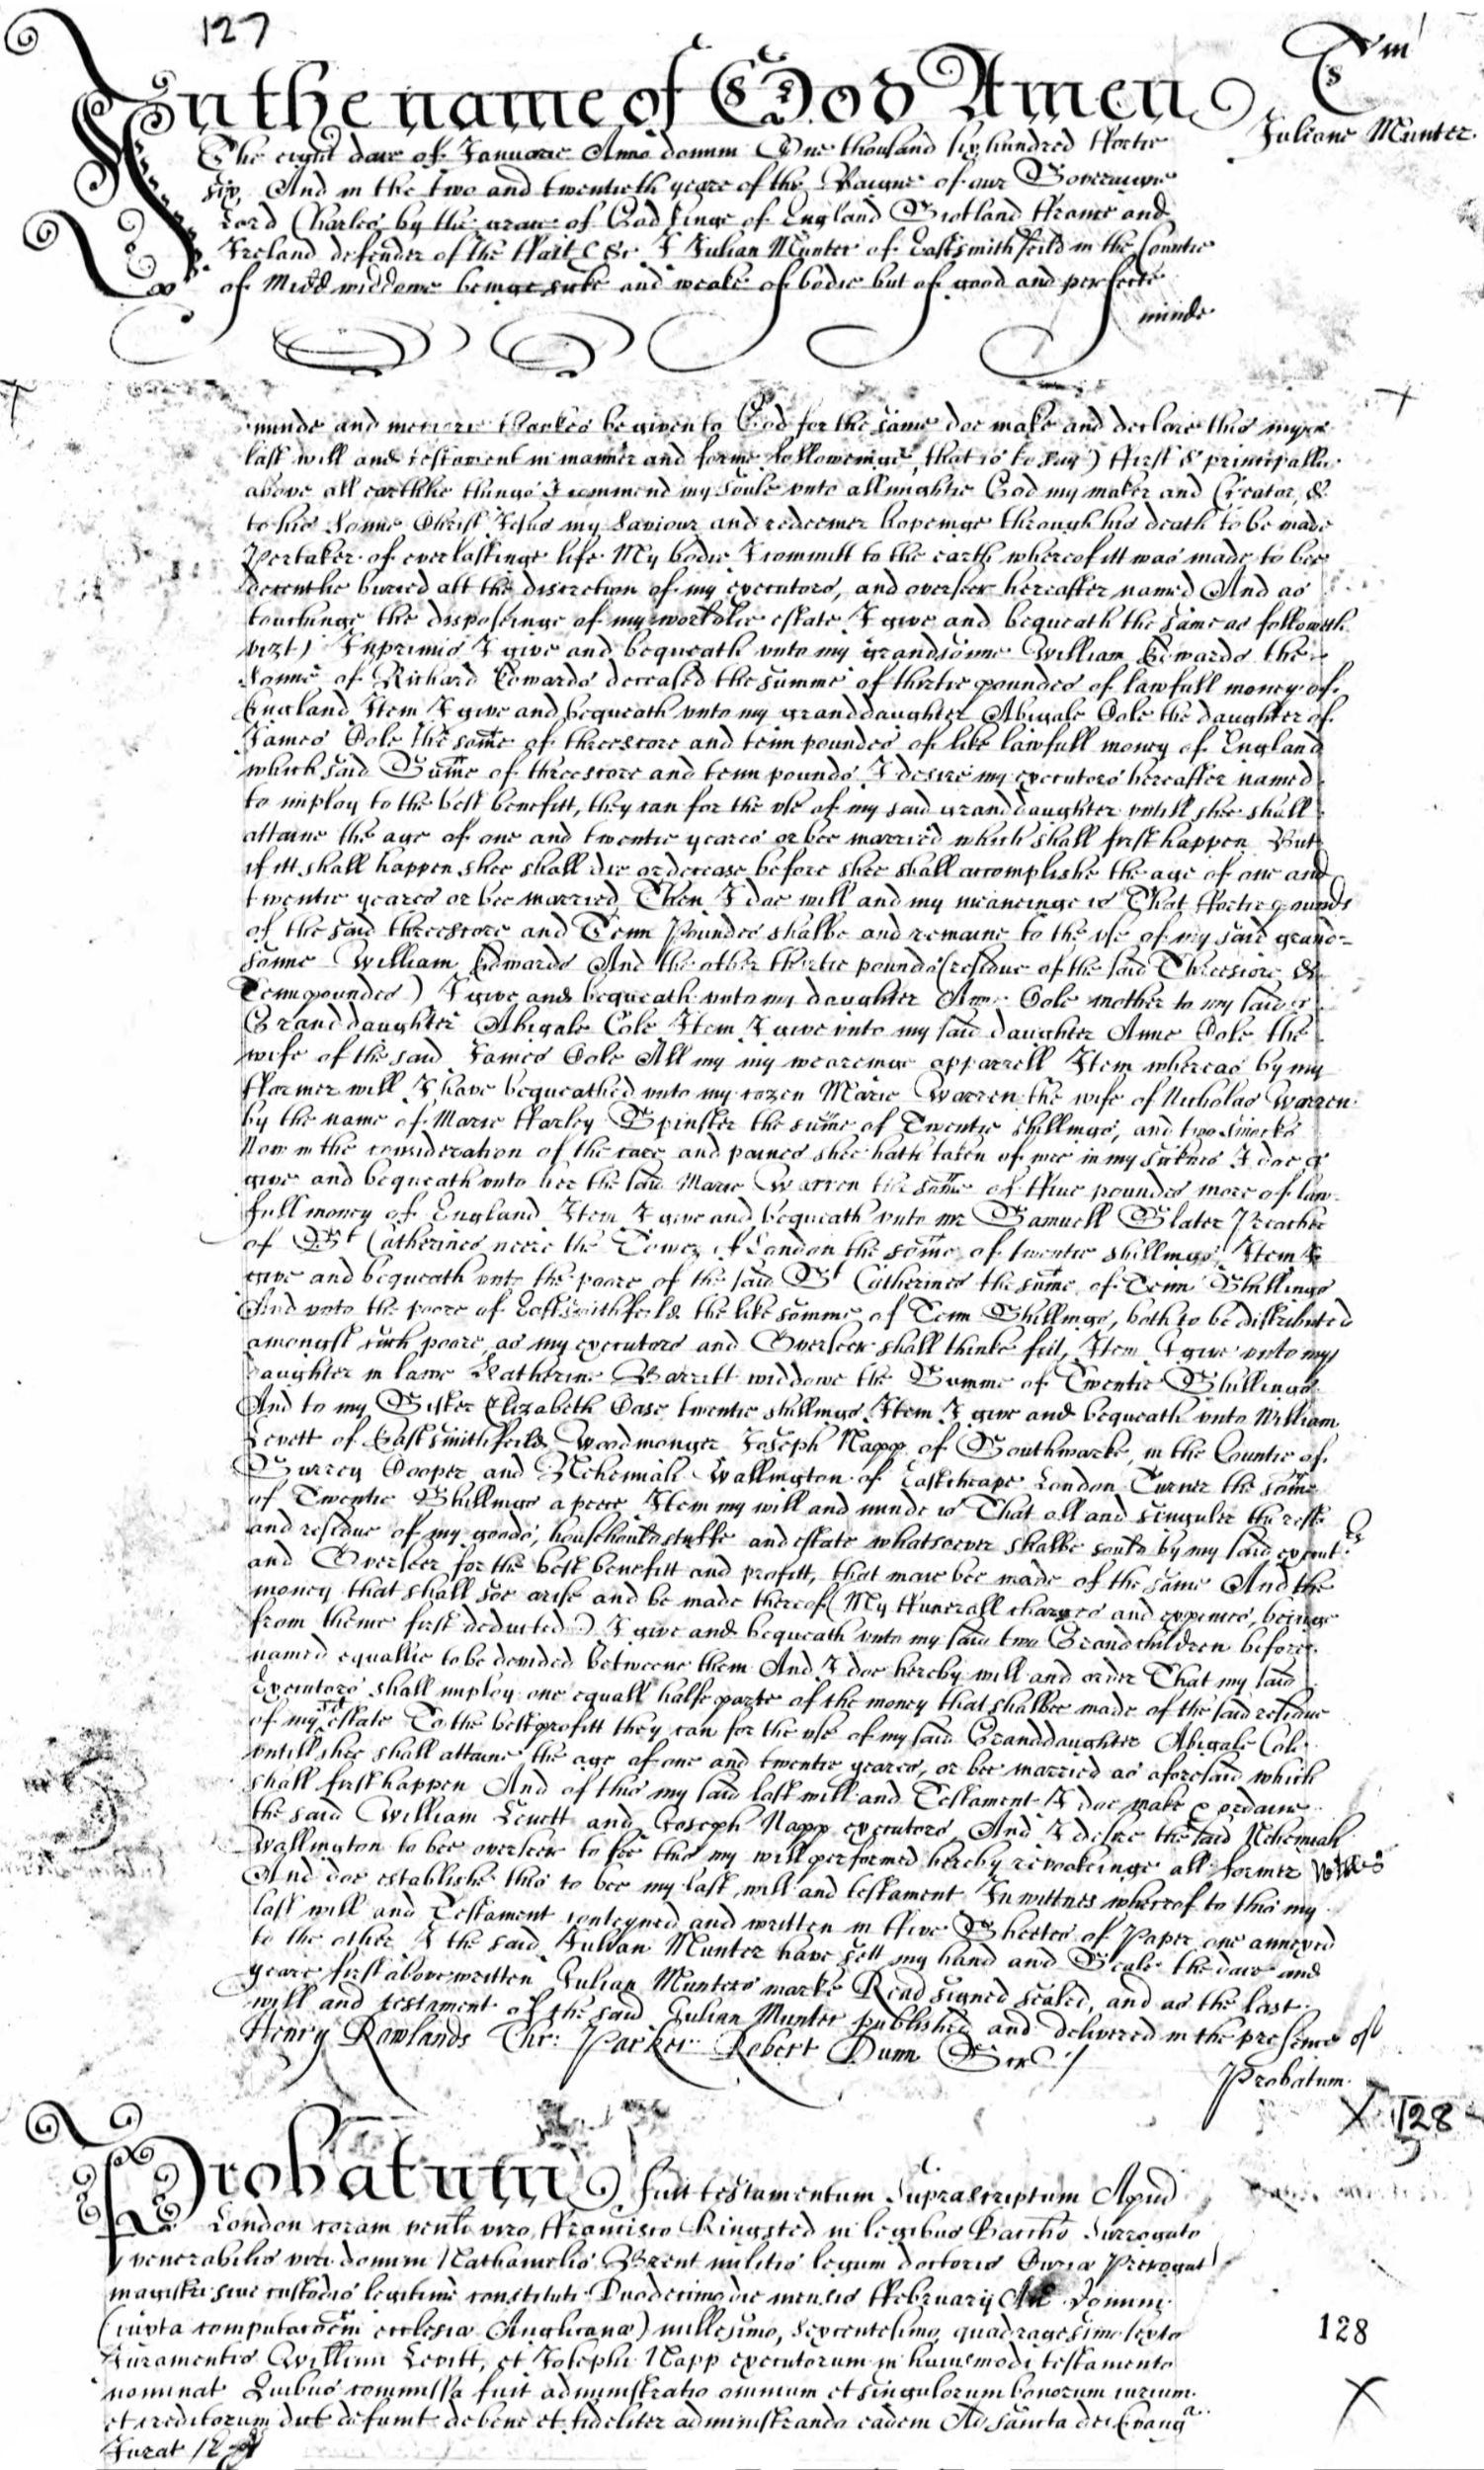 127
Tm
Juliane Munter.
In the name of God Amen
The eight daie of Januarie Anno domini One thousand six hundred ffortie
six, And in the two and twentieth yeare of the Raigne of our Soveraigne
Lord Charles by the grace of God kinge of England Scotland ffrance and
Ireland defender of the ffaith &c I Julian Munter of Eastsmithfeild in the Countie
of Midd widdowe beinge sicke and weake of bodie but of good and perfecte
minde
minde and memorie thankes be given to God for the same doe make and declare this my
last will and testament in manner and forme followeinge, that is to say) ffirst & principallie
above all earthlie things I commend my soule vnto allmightie God my maker and Creator, &
to his Sonne Christ Jesus my Saviour and redeemer hopeinge through his death to be made
Pertaker of everlastinge life My bodie I committ to the earth whereof itt was made to bee
decentlie buried att the discretion of my executors, and overseer hereafter named And as
touchinge the disposeinge of my worldlie estate I give and bequeath the same as followeth
vizt) Inprimis I give and bequeath vnto my grandsonne William Edwards the
Sonne of Richard Edwards deceased the summe of thirtie poundes of lawfull money of
England Item I give and bequeath vnto my granddaughter Abigale Cole the daughter of
James Cole the some of threescore and tenn poundes of like lawfull money of England
which said Sume of threescore and tenn pounds I desire my executors hereafter named
to imploy to the best benefitt, they can for the vse of my said granddaughter vntill shee shall
attaine the age of one and twentie yeares or bee married which shall first happen But
if itt shall happen shee shall die or decease before shee shall accomplishe the age of one and
twentie yeares or bee married Then I doe will and my meaneinge is That ffortie pounds
of the said threescore and Tenn Poundes shalbe and remaine to the vse of my said grand=
sonne William Edwards And the other thirtie pounds (residue of the said Threescore &
Tenn poundes) I give and bequeath vnto my daughter Anne Cole mother to my said
Granddaughter Abigale Cole Item I give vnto my said daughter Anne Cole the
wife of the said James Cole All my my weareinge apparrell Item whereas by my
fformer will I have bequeathed vnto my cozen Marie Warren the wife of Nicholas Warren
by the name of Marie ffarley Spinster the sume of Twentie shillings, and two smocks
Now in the consideration of the care and paines shee hath taken of mee in my sicknes I doe
give and bequeath vnto her the said Marie Warren the some of ffive poundes more of law-
full money of England Item I give and bequeath vnto mr Samuell Slater Preacher
of St Catherines neere the Tower of London the some of twentie shillings, Item I
give and bequeath vnto the poore of the said St Catherines the sume of Tenn Shillings
And vnto the poore of Eastsmithfeild the like somme of Tenn Shillings, both to be distributed
amongst such poore, as my executors and Overseer shall thinke fitt, Item I give vnto my
daughter in lawe Katherine Barritt widdowe the Somme of Twentie Shillings
And to my Sister Elizabeth Case twentie shillings Item I give and bequeath vnto William
Levett of Eastsmithfeild Woodmonger Joseph Napp of Southwarke, in the Countie of
Surrey Cooper and Nehemiah Wallington of Eastcheape London Turner the some
of Twentie Shillings a peece Item my will and minde is That all and singuler the reste
and residue of my goods, househould stuffe and estate whatsoever shalbe sould by my said execut:rs
and Overseer for the best benefitt and profitt, that maie bee made of the same And the
money that shall soe arise and be made thereof (My ffunerall charges and expences, beinge
from thence first deducted) I give and bequeath vnto my said two Grandchildren before
named equallie to be devided betweene them And I doe hereby will and order That my said
Executors shall imploy one equall halfe parte of the money that shalbee made of the said residue
of my estate To the best profitt they can for the vse of my said Granddaughter Abigale Cole
vntill shee shall attaine the age of one and twentie yeares, or bee married as aforesaid which
shall first happen And of this my said last will and Testament I doe make & ordaine
the said William Levett and Joseph Napp executors And I desire the said Nehemiah
Wallington to bee overseer to see this my will performed hereby revookeinge all former wills
And doe establishe this to bee my last will and testament In wittnes whereof to this my
last will and Testament conteyned and written in ffive Sheetes of Paper one annexed
to the other I the said Julian Munter have sett my hand and Seale the daie and
yeare first above written Julian Munters marke Read signed sealed, and as the last
will and testament of the said Julian Munter published and delivered in the presence of
Henry Rowlands Thr: Parker Robert Dunn Scr /
Probatum
128
Probatum fuit testamentum suprascriptum Apud
London coram venli viro ffrancisco Ringsted in legibus Baccho Surrogato
venerabilis viri domini Nathanielis Brent militis legum doctoris Curiæ Prerogat
magistri sive custodis legitime constituti Duodecimo die mensis ffebruarij Ano Domini
(iuxta computacoem ecclesiæ Anglicanæ) millesimo, sexcentesimo, quadragesimo sexto
Juramentis Willimi Levitt, et Josephi Napp executorum in huiusmodi testamento
nominat Quibus commissa fuit administratio omnium et singulorum bonorum iurium
et creditorum dict defunct de bene et fideliter administrando eadem Ad sancta dei Evang
Jurat
128